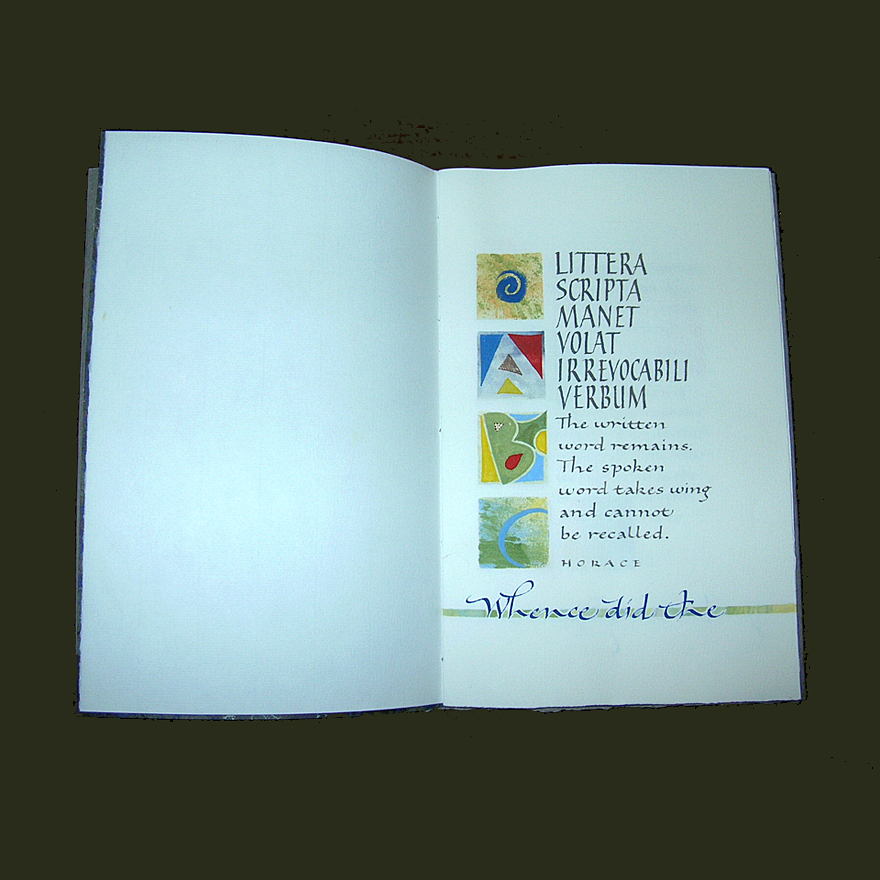 LITTERA
SCRIPTA
MANET
VOLAT
IRREVOCABILI
VERBUM
The written
word remains.
The spoken
word takes wing
and cannot
be recalled.
HORACE
Whence did the